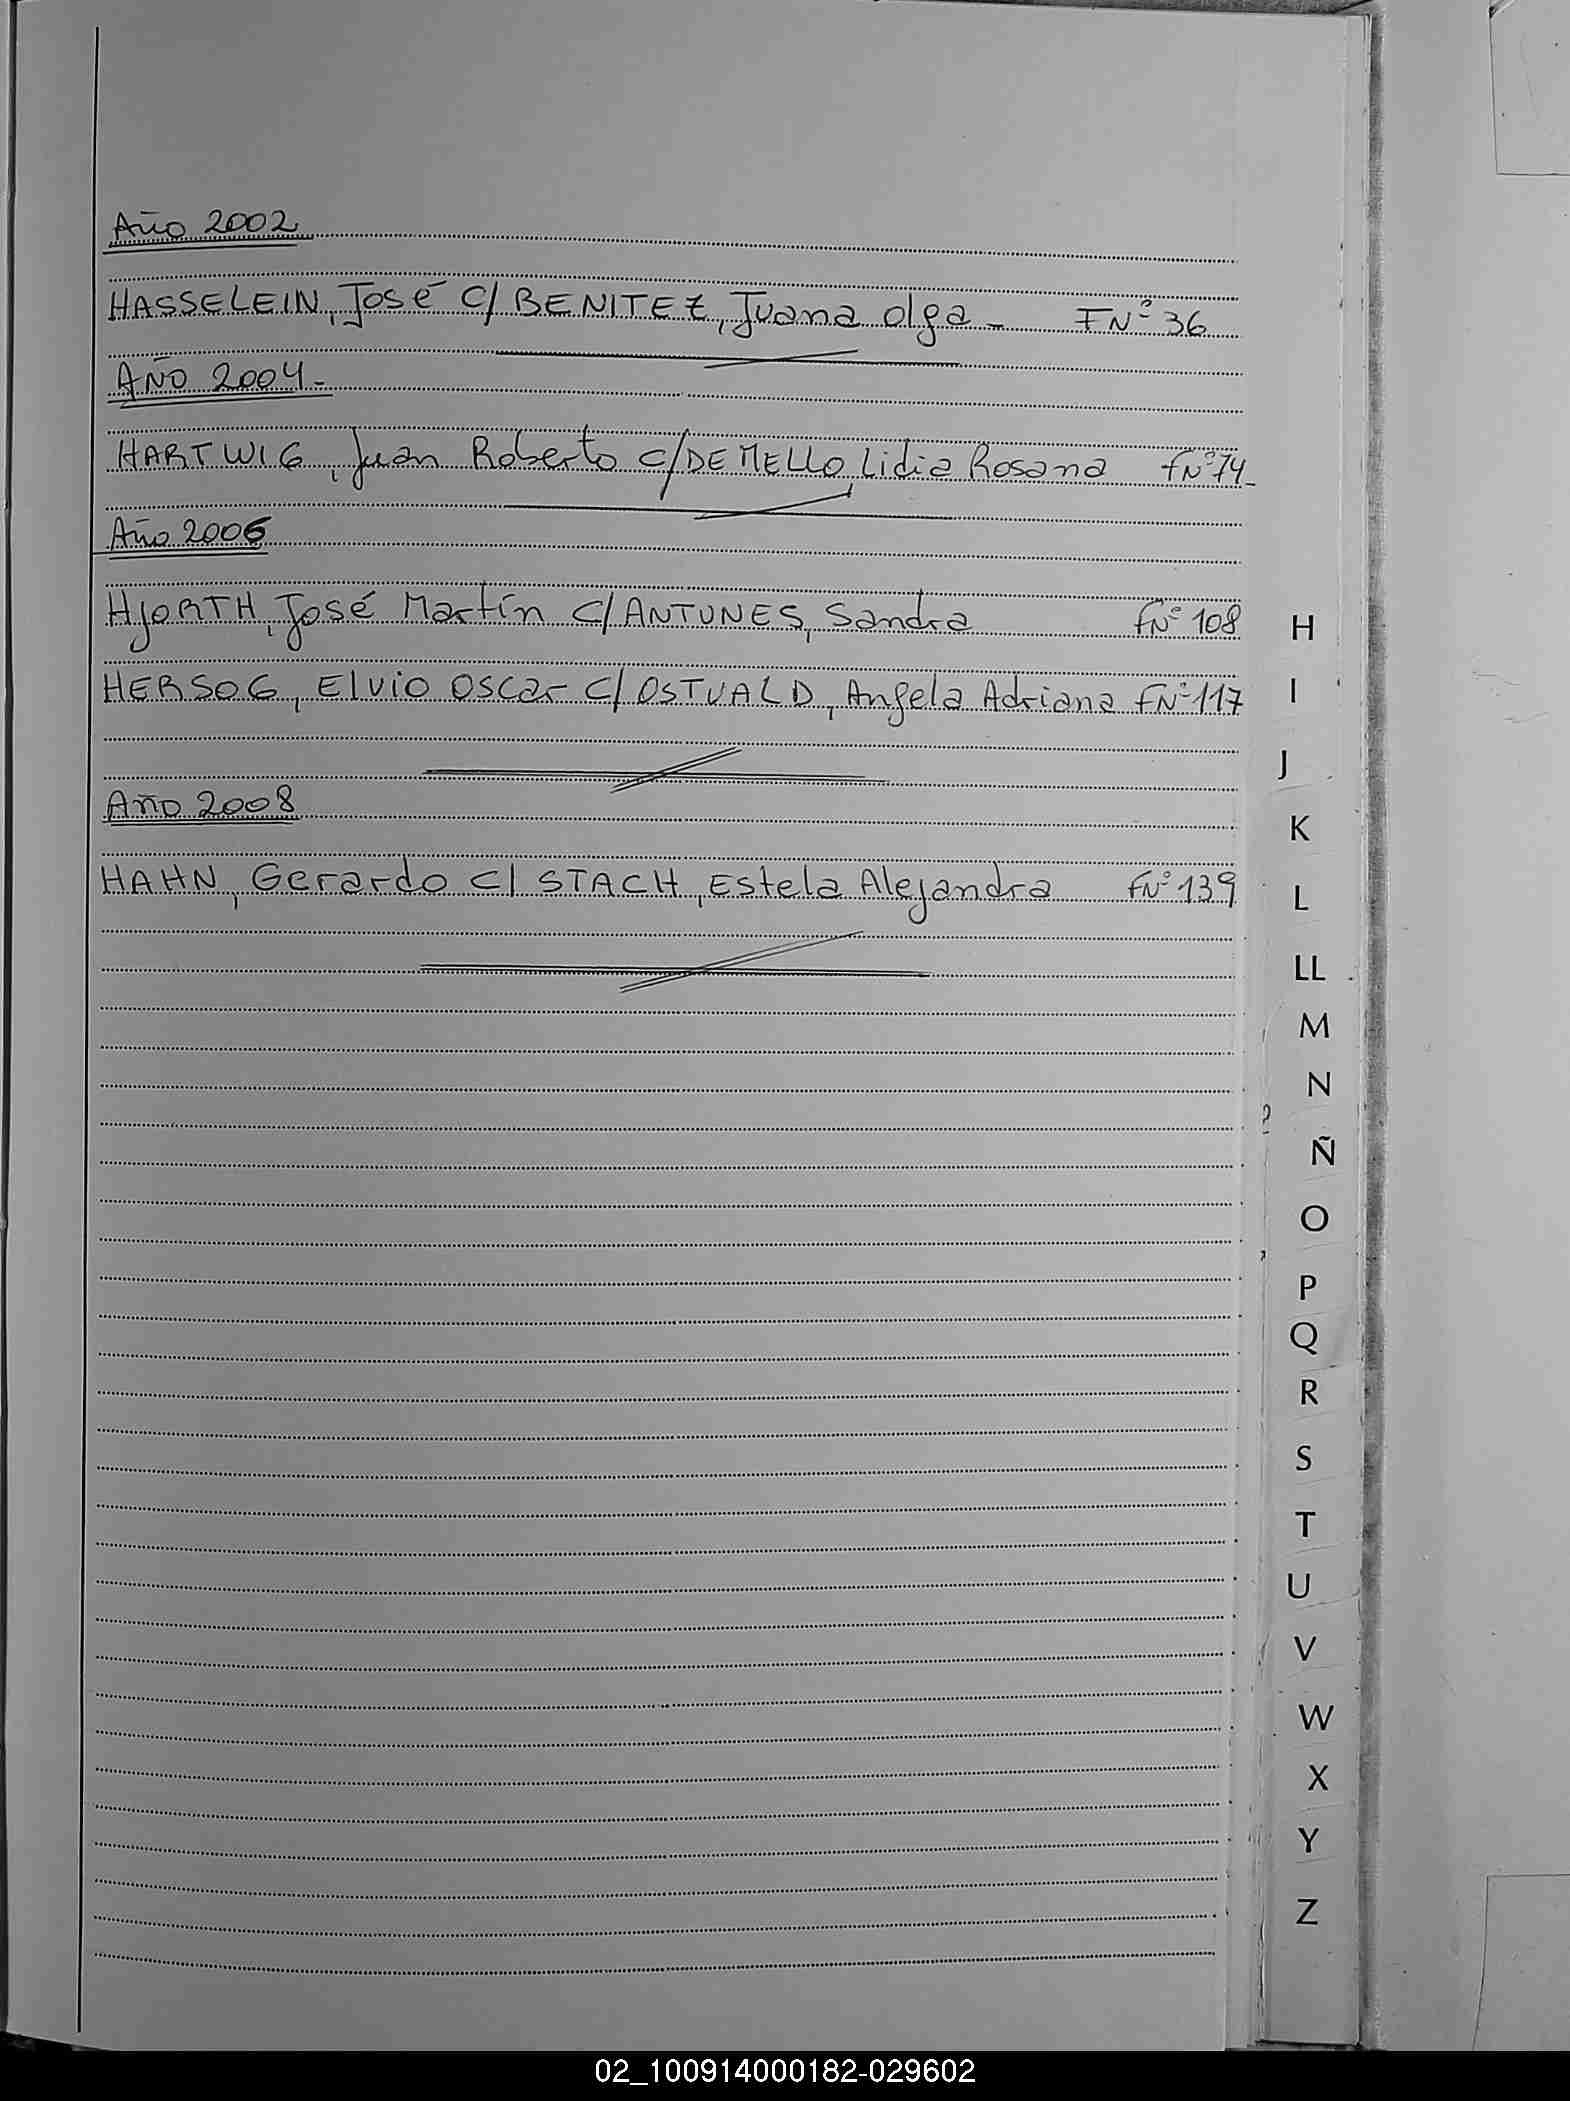 Año 2002
HASSELEIN, José C/ BENITEZ, Juana Olga - FNº 36
AÑO 2004-
HARTWIG, Juan Roberto C/ DE MELLO Lidia Rosana fNº 74-
Año 2006
HJORTH, José Martín C/ ANTUNES, Sandra fNº 108
HERSOG, Elvio Oscar C/ OSTUALD, Angela Adriana FNº 117
Año 2008
HAHN, Gerardo C/ STACH, Estela Alejandra FNº 139
H
I
J
K
L
LL
M
N
Ñ
O
P
Q
R
S
T
U
V
W
X
Y
Z
02_100914000182-029602